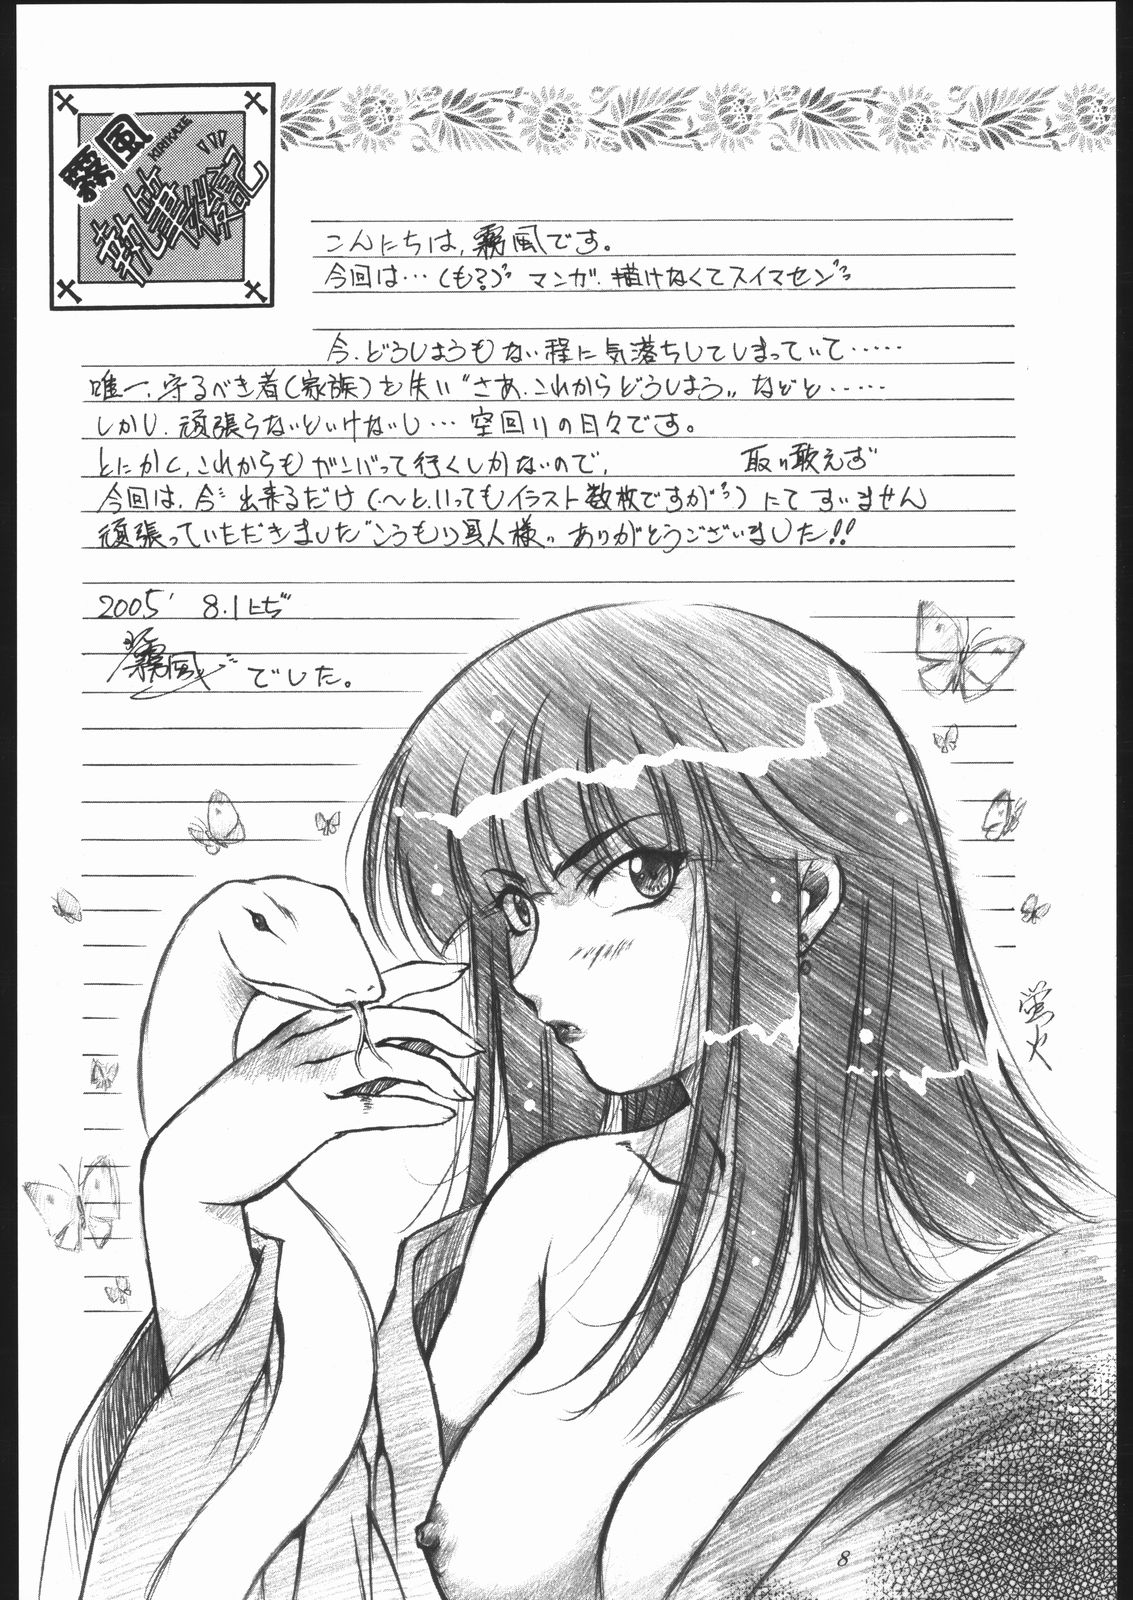 霧風
KIRIKAZE
執筆後記
こんにちは、霧風です。
今回は…(も?)゛マンガ、描けなくてスイマセン゛
今、どうしようもない程に気落ちしてしまっていて……
唯一、守るべき者(家族)を失い“さあ、これからどうしよう„などと……
しかし、頑張らないといけないし…空回りの日々です。
とにかく、これからもガンバって行くしかないので、 取り敢えず
今回は、今゛出来るだけ(〜と、いってもイラスト数枚ですが゛)にて すいません
頑張っていただきました“こうもり 具人様„ ありがとうございました!!
2005' 8.1
霧風 でした。
蛍火
8